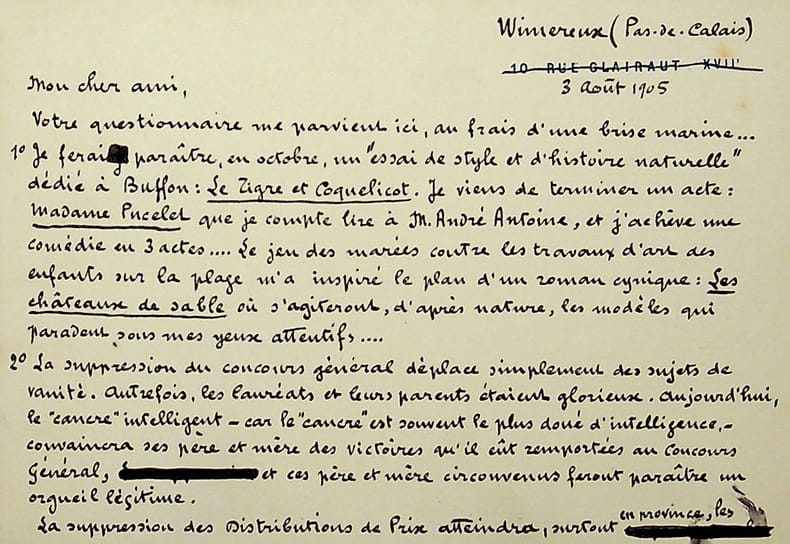 Wimereux (Pas-de-Calais)
10 RUE CLAIRAUT XVIIᵉ
3 Août 1905
Mon cher ami,
Votre questionnaire me parvient ici, au frais d'une brise marine...
1º Je ferai paraître, en octobre, un "essai de style et d'histoire naturelle"
dédié à Buffon : Le Tigre et Coquelicot. Je viens de terminer un acte :
Madame Pucelet que je compte lire à M. André Antoine, et j'achève une
comédie en 3 actes.... Le jeu des marées contre les travaux d'art des
enfants sur la plage m'a inspiré le plan d'un roman cynique : Les
châteaux de sable où s'agiteront, d'après nature, les modèles qui
paradent sous mes yeux attentifs....
2º La suppression du concours général déplace simplement des sujets de
vanité. Autrefois, les lauréats et leurs parents étaient glorieux. Aujourd'hui,
le "cancre" intelligent – car le "cancre" est souvent le plus doué d'intelligence, –
convaincra ses père et mère des victoires qu'il eût remportées au Concours
Général, et ces père et mère circonvenus feront paraître un
orgueil légitime.
La suppression des Distributions de Prix atteindra, surtout en province, les